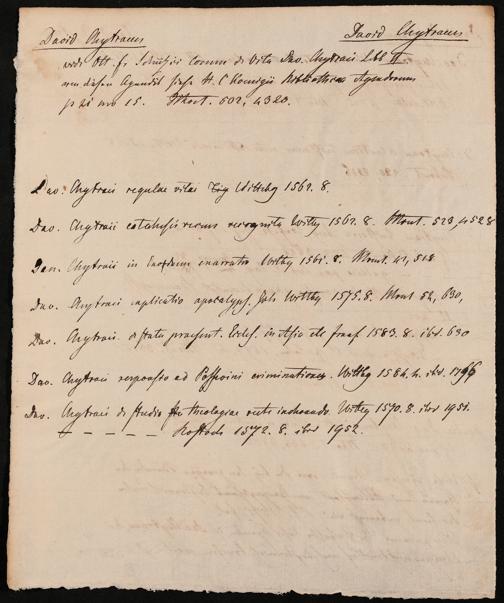 David Chytraeus David Chytraeus
vide Ott. fr. Schützii Comm. de Vita Dav. Chytraei Lbb IV
von diesen Agendis siehe H. C. Koenigii Bibliotheca Agendorum
p 21 nro 15. Mont. 602, 4320.
Dav. Chytraei regulae vitae Witebg 1567. 8.
Dav. Chytraei catechesis recens recognita Witbg 1567. 8. Mont. 523, 4528
Dav. Chytraei in Exodum enarratio Witbg 1561. 8. Mont. 41, 518
Dav. Chytraei explicatio apocalyps. Joh. Wittbg 1575. 8. Mont 52, 630,
Dav. Chytraei de statu praesent. Eccles. in Asia etc Franf 1583. 8. ibd. 630
Dav. Chytraei responsio ad Possevini criminationes. Wittbg 1584. 4. ibd. 1796
Dav. Chytraei de studio theologiae recte inchoando. Witbg 1570. 8. ibd 1951.
– – – – – – Rostoch 1572. 8. ibd 1952.